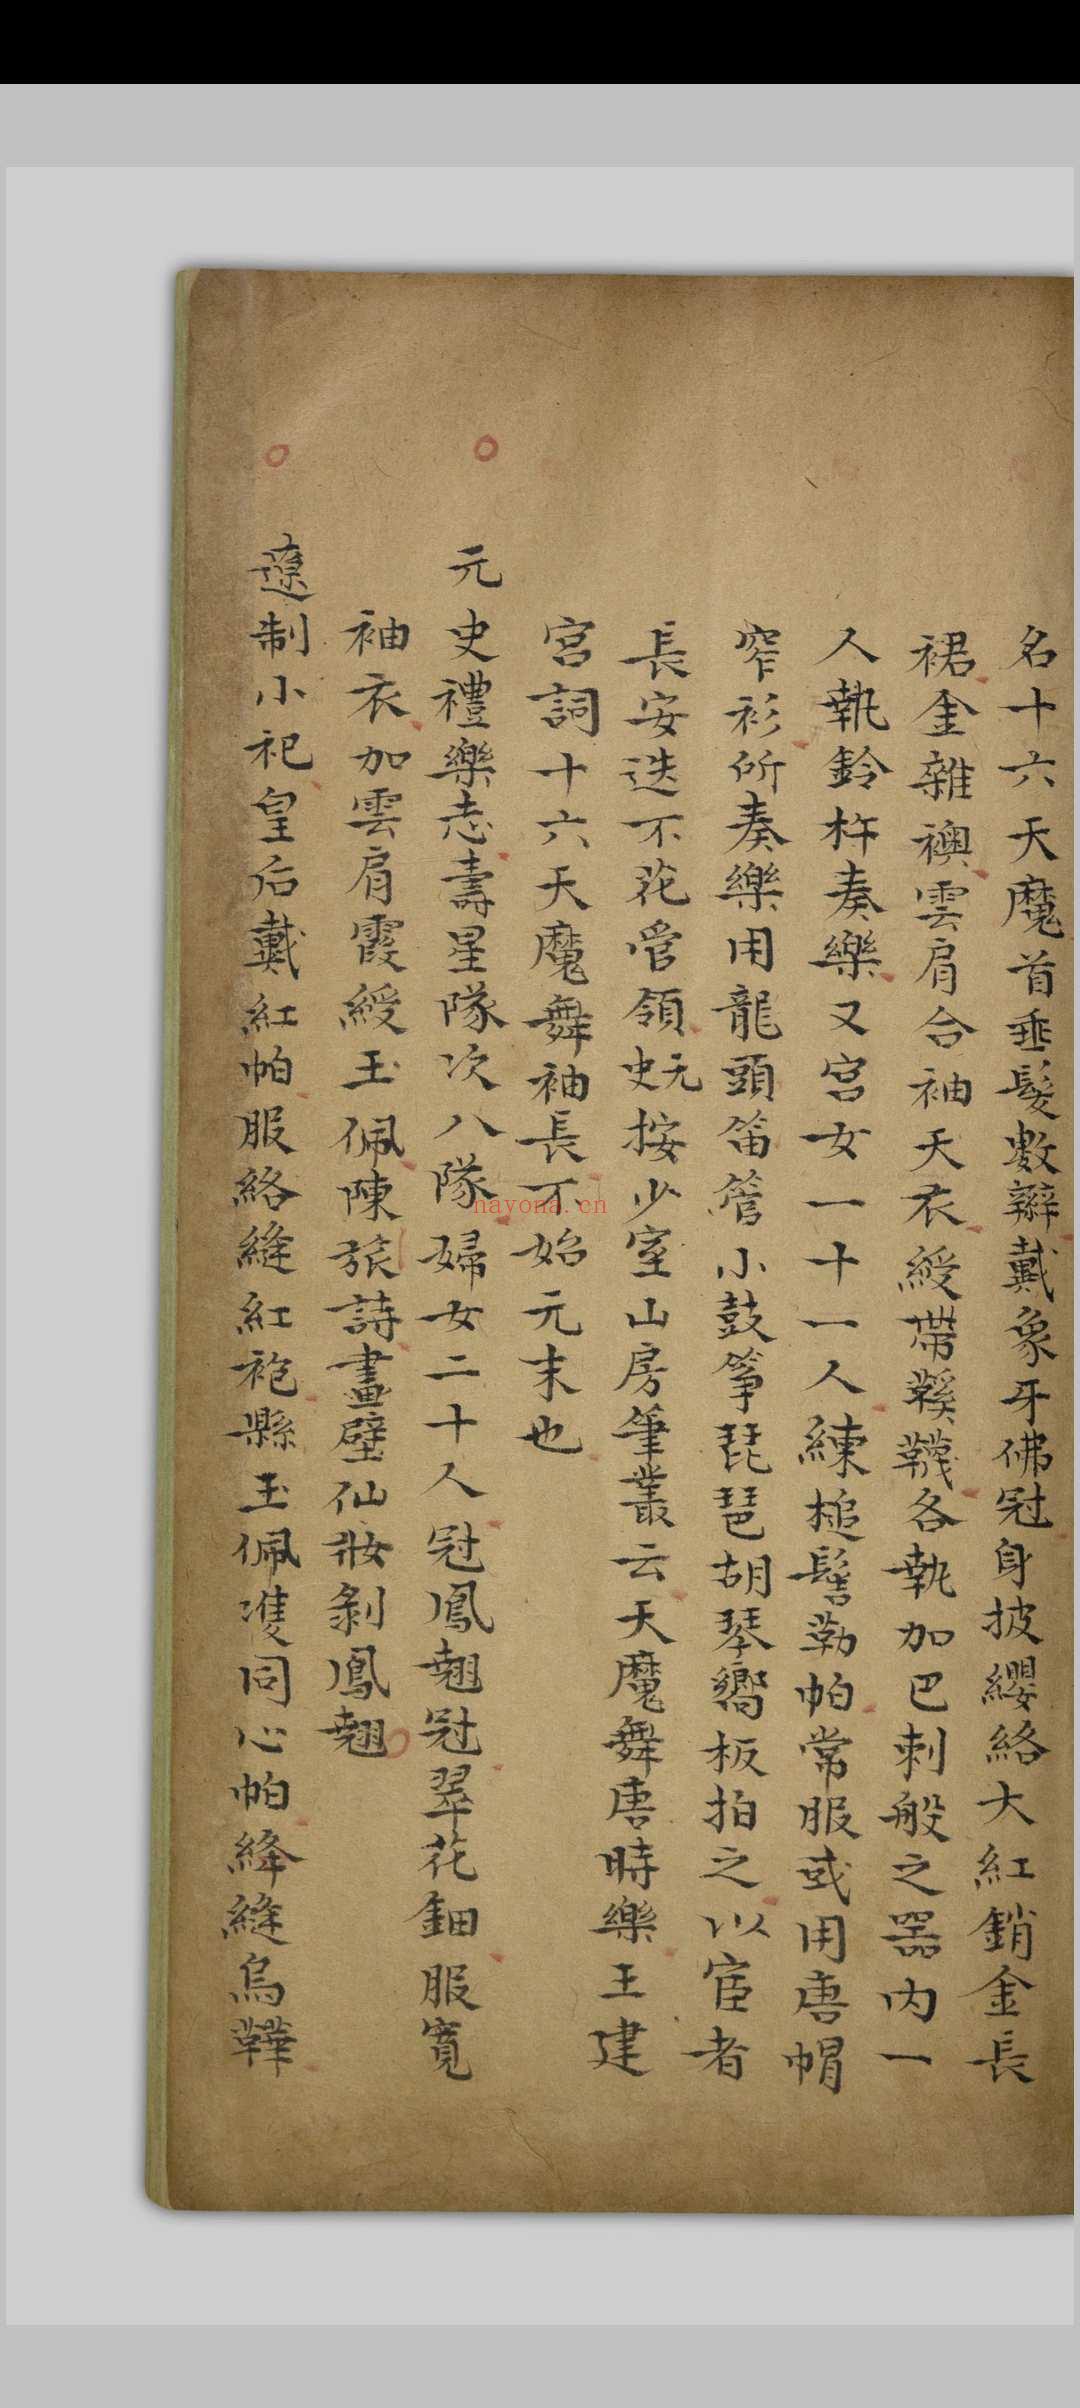 名十六天魔首垂髮數辮戴象牙佛冠身披纓絡大紅銷金長
裙金雜襖雲肩合袖天衣綬帶鞵韈各執加巴剌般之器内一
人執鈴杵奏樂又宮女一十一人練槌髻勒帕常服或用唐帽
窄衫所奏樂用龍頭笛管小鼓箏琵琶胡琴響板拍之以宦者
長安迭不花管領元史按少室山房筆叢云天魔舞唐時樂王建
宮詞十六天魔舞袖長不始元末也
元史禮樂志壽星隊次八隊婦女二十人冠鳳翹冠翠花鈿服寬
袖衣加雲肩霞綬玉佩陳旅詩畫壁仙妝剝鳳翹
遼制小祀皇后戴紅帕服絡縫紅袍縣玉佩雙同心帕絳縫烏鞾
nayona.cn